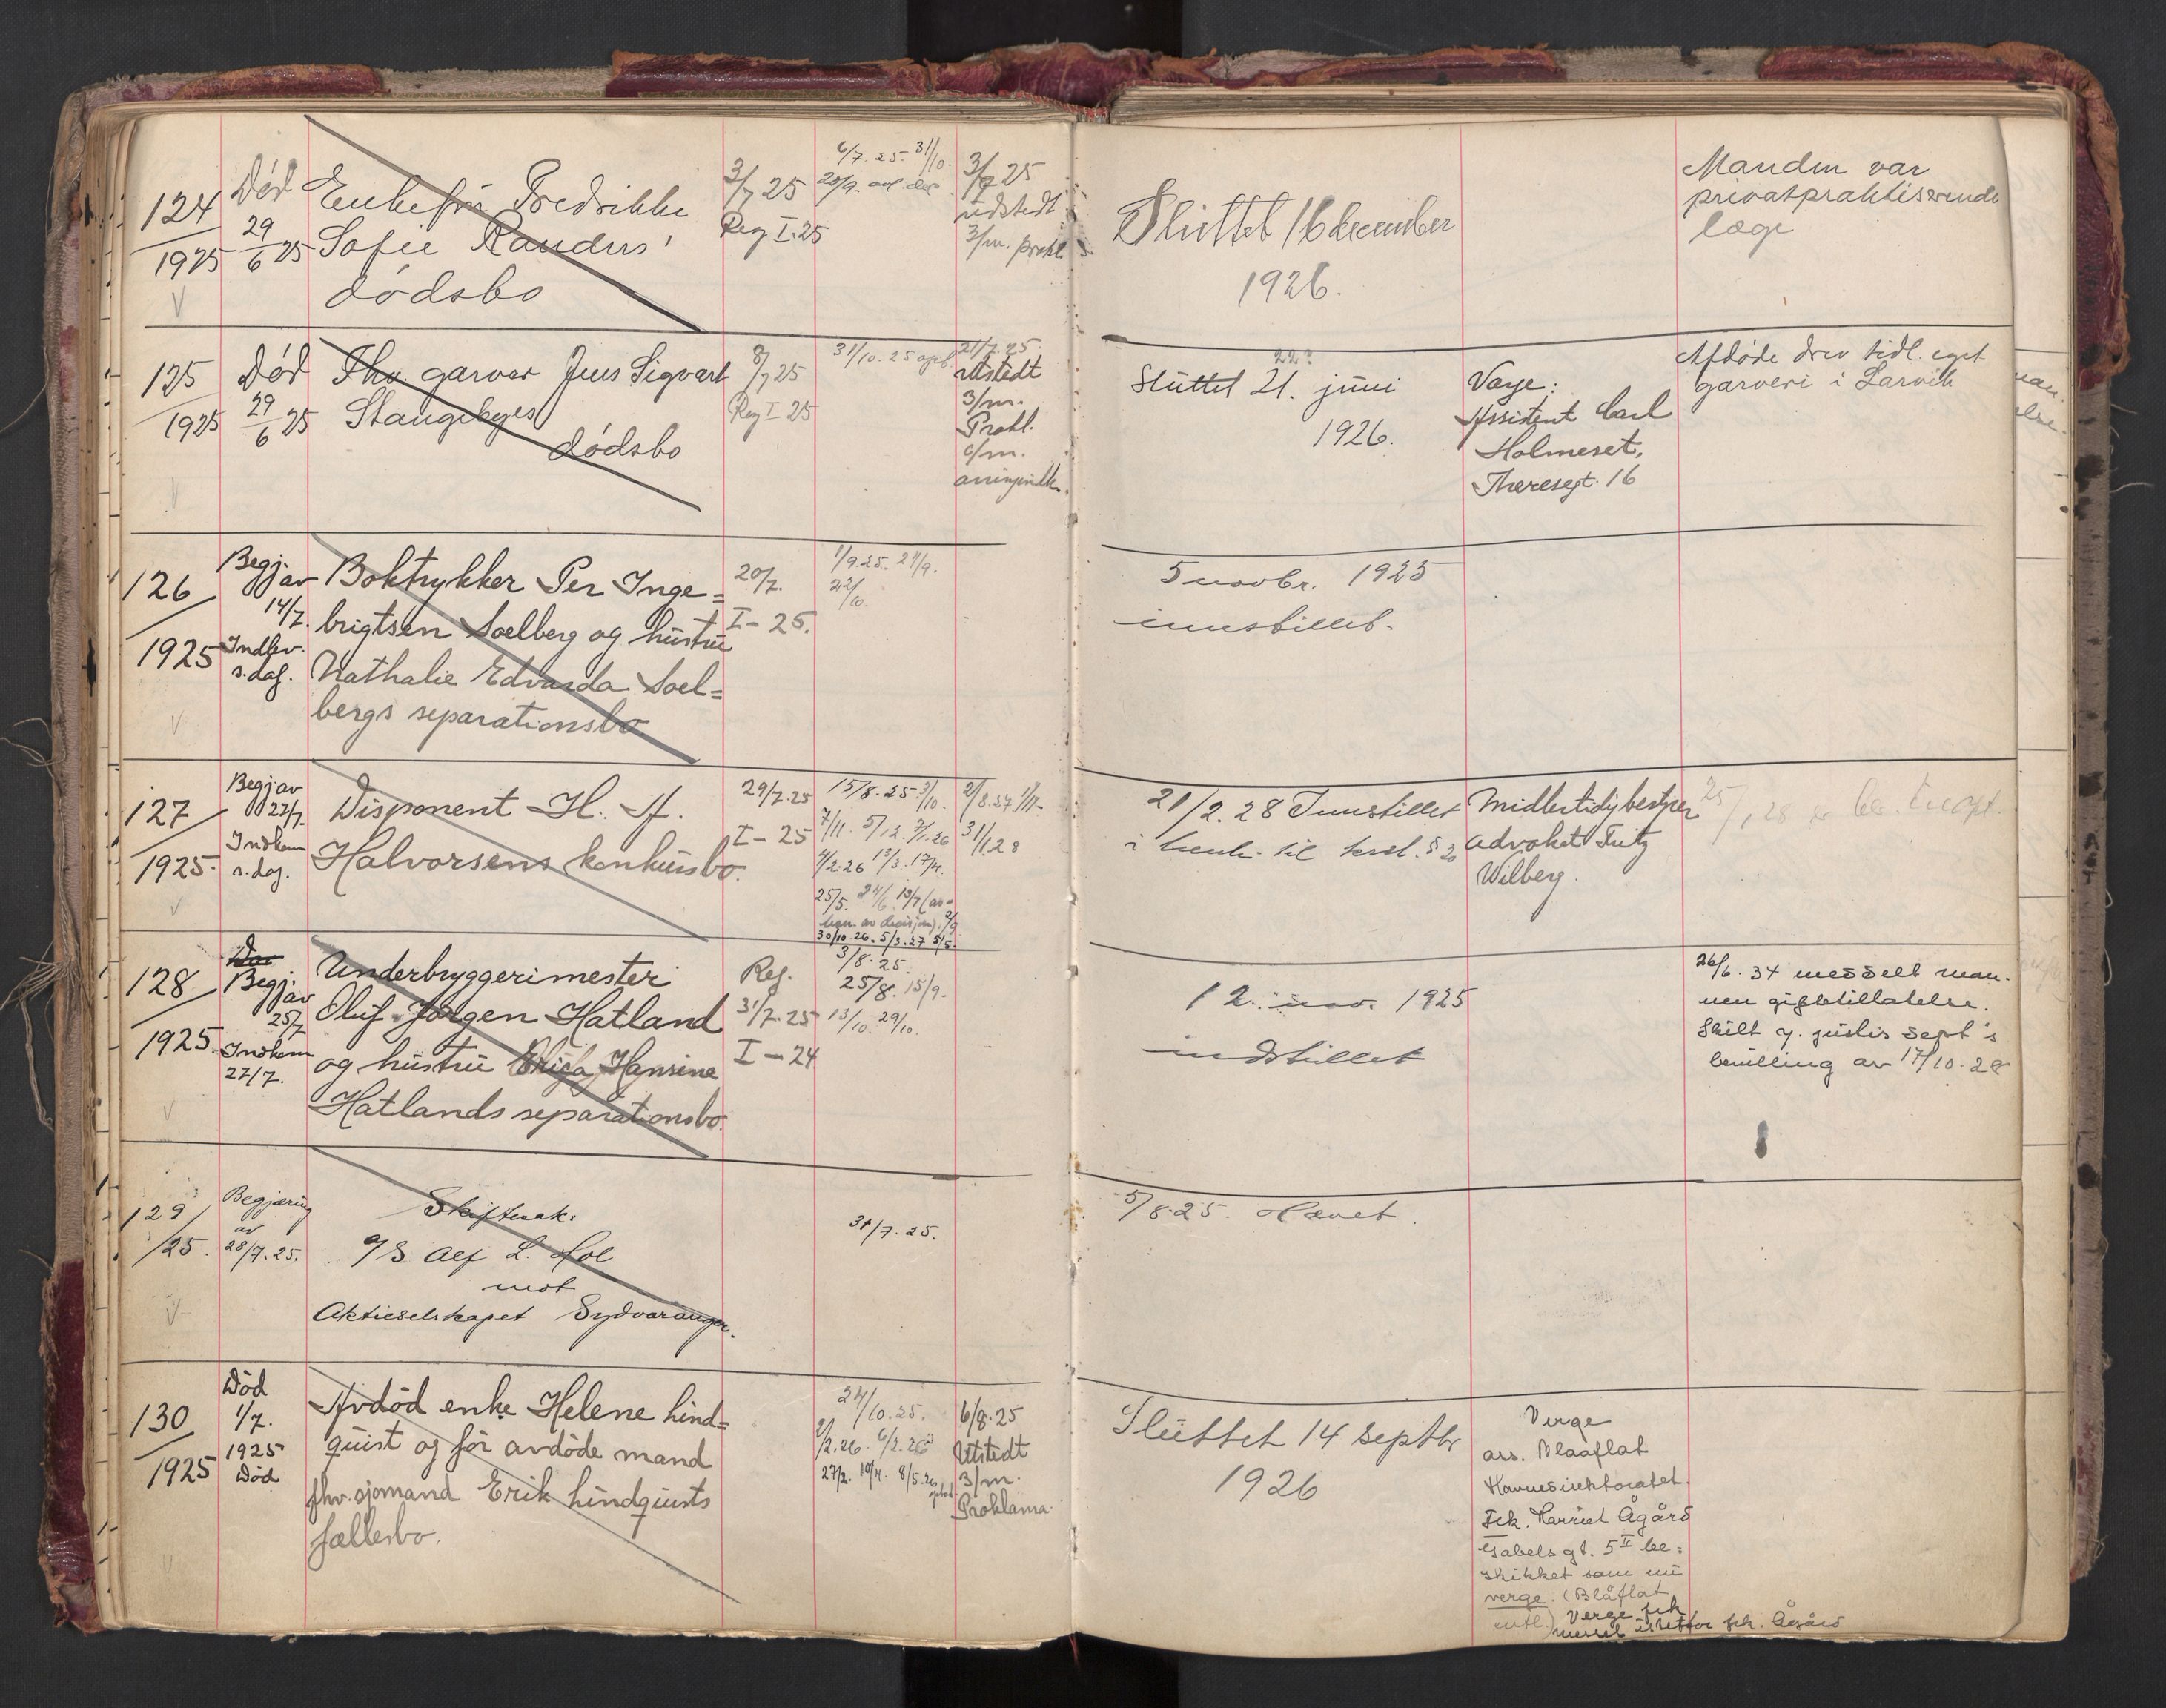 124
1925
Død
29
6 25
Enkefru Fredrikke
Sofie Randers'
dødsbo
3/7 25
Reg I. 25
6/7. 25. 31/10.
3/7 25
udstedt
3/m. prokl
Sluttet 16 december
1926.
Manden var
privatpraktiserende
læge
125
1925
Død
29
6 25
Fhv. garver Jens Sigvart
Stangebyes
dødsbo
8/7 25
Reg I 25
31/10. 25
21/7. 25.
Utstedt
3/m.
Prokl.
Sluttet 21. juni
1926.
Verge:
Assistent Carl
Holmeset,
Theresegt. 16
Afdøde drev tidl. eget
garveri i Larvik
126
1925
Begj. av
14/7.
Indlev.
s. dag.
Boktrykker Per Inge=
brigtsen Soelberg og hustru
Nathalie Edvarda Soel=
bergs separationsbo
20/7.
I - 25.
1/9.25. 24/9.
22/10.
5 novbr. 1925
innstillet.
127
1925.
Begj av
27/7.
Indkom
s. dag.
Disponent H. A.
Halvorsens konkursbo.
29/7.25
I - 25
15/8.25
7/11. 5/12. 7/1.26
30/10.26. 5/3.27 5/5.
31/1 28
21/2. 28 Innstillet
i henh. til
Midlertidig bestyrer
advokat Fritz
Wilberg.
128
1925.
Begj. av
25/7
Indkom
27/7.
Underbryggerimester
Oluf Jørgen Hatland
og hustru Hansine
Hatlands separationsbo.
Reg.
31/7.25
I - 24
3/8. 25.
25/8. 15/9.
13/10. 29/10.
12. nov. 1925
indstillet
26/6. 34 meddelt man-
nen giftetillatelse.
Skilt v. justis dept's
bevilling av 17/10. 28
129
/25.
Begjæring
av
28/7. 25.
Skiftesak:
A/S Alf L. Hol
mot
Aktieselskapet Sydvaranger.
31/7. 25.
5/8. 25. Hævet.
130
1925
Død
1/7.
1925
Død
Avdød enke Helene Lind=
quist og før avdøde mand
fhv. sjømand Erik Lindquists
fællesbo.
24/10. 25.
27/2. 10/4. 8/5.26
6/8.25
Utstedt
3/m.
Proklama.
Sluttet 14 septbr
1926
Verge
ass. Blaaflat
Havnedirektoratet.
Frk. Harriet Ågård
Gabels gt. 5 II be=
skikket som ny
verge. (Blåflat
entl.) Verge frk.
istedfor frk. Ågård